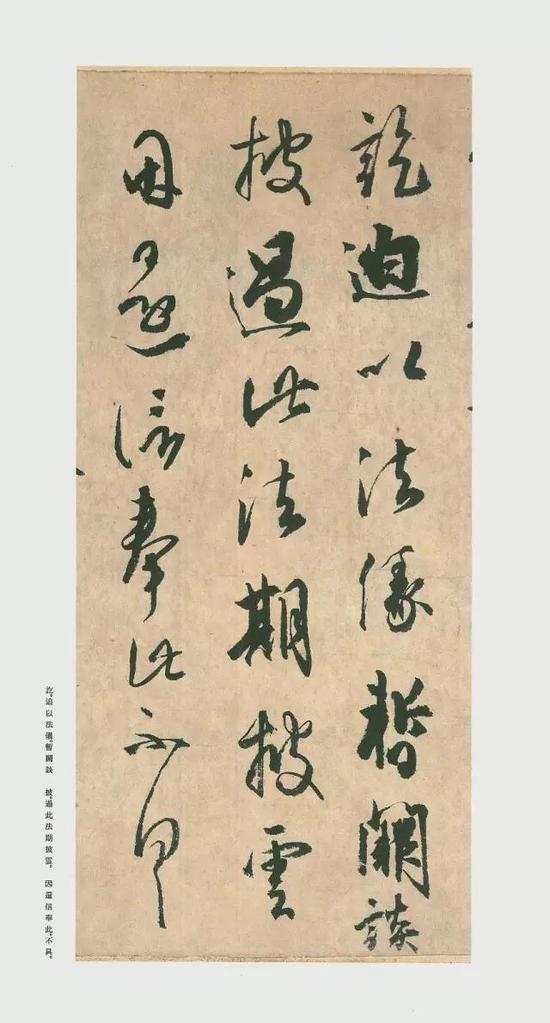 訖迫以法緣暫闕談
披過此法期披雲
因還信奉此不具
訖。迫以法緣。暫闕談　披。過此法期披雲。　因還信奉此。不具。